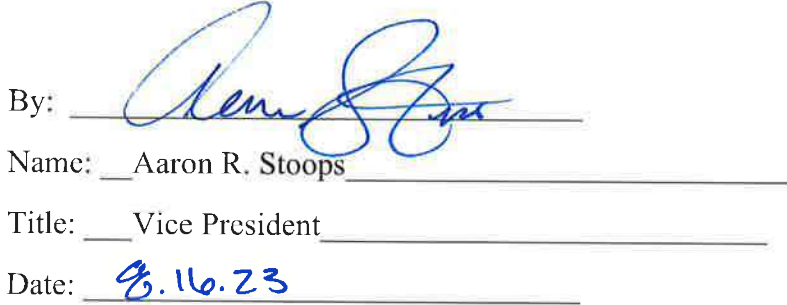 By:
Name: Aaron R. Stoops
Title: Vice President
Date: 8.16.23